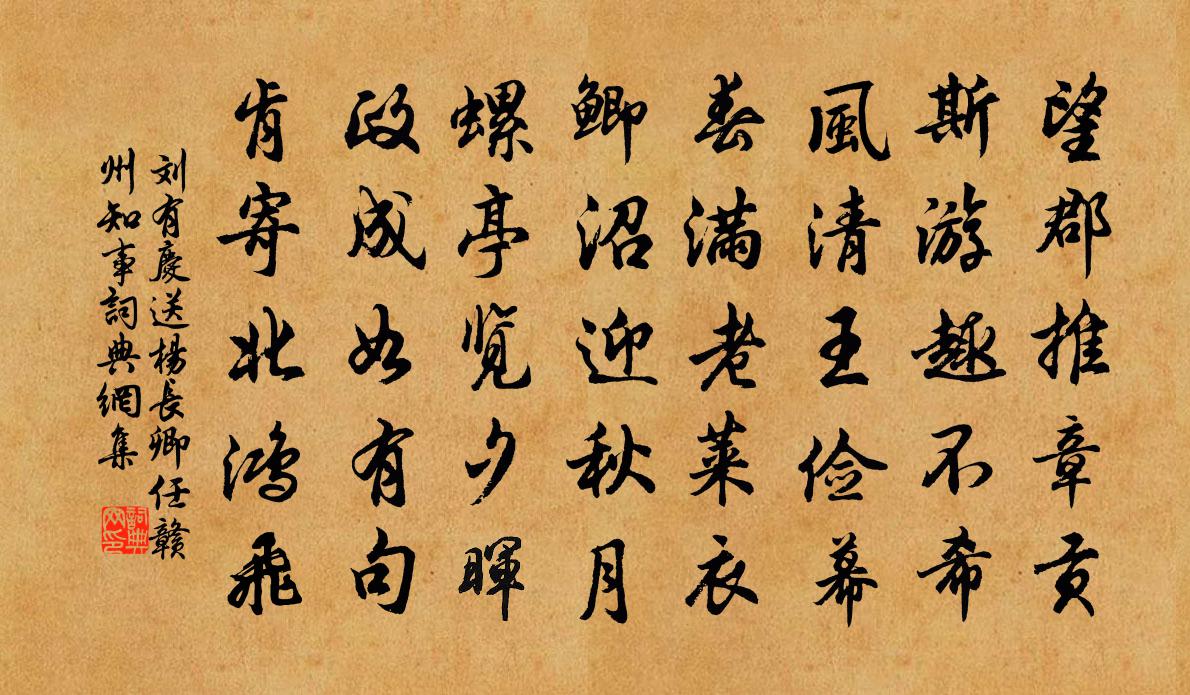 望郡推章贡
斯游趣不希
風清王俭幕
春满老莱衣
鲫沼迎秋月
螺亭览夕暉
政成如有句
肯寄北鸿飛
刘有慶送楊長卿任贛
州知事詞典網集